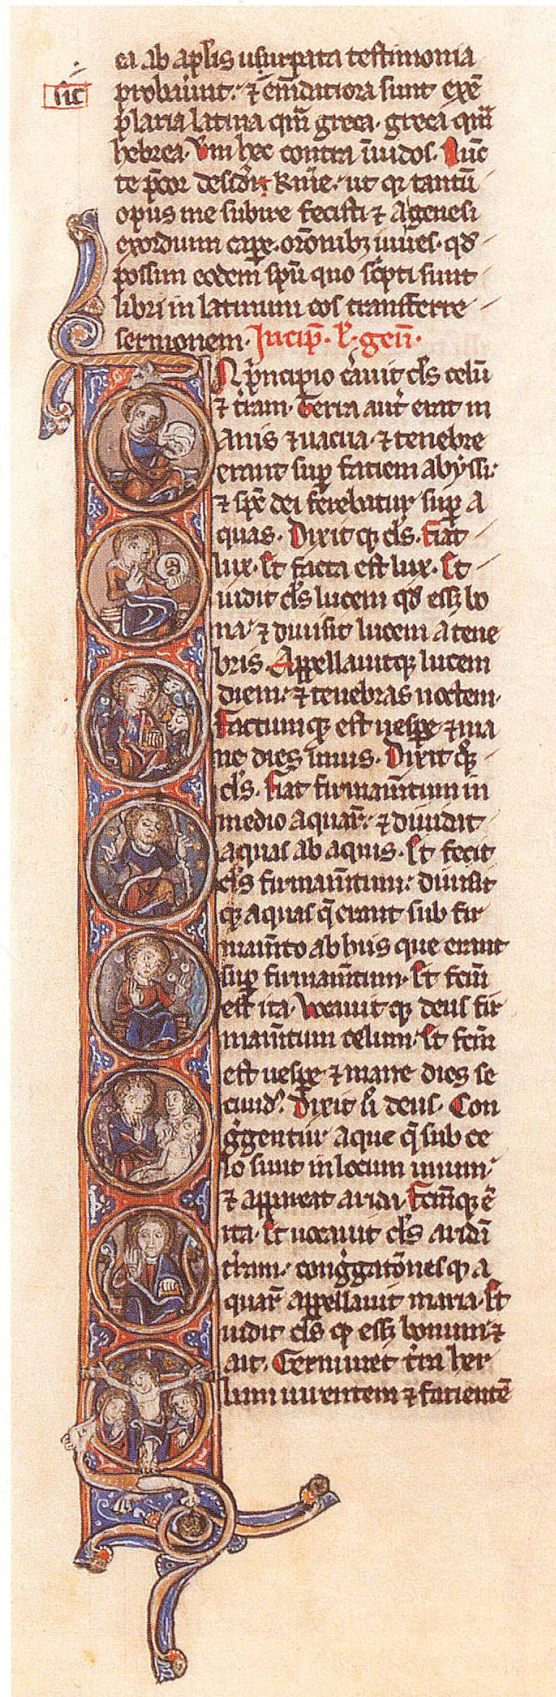 ea ab aplis usurpata testimonia
sic
probauunt: ⁊ em̄datiora sunt exē
plaria latina qm̄ greca. greca qm̄
hebrea. Vm hec contra inuidos. Nūc
te p̄cor desid̓i kr̄me. ut q tantū
opus me subire fecisti ⁊ A genesi
exordium cape. orōnibꝫ iuues. qđ
possim eodem spū quo sc̄pti sunt
libri in latinum eos transferre
sermonem. Incip̄. l̓. gen̄.
N p̓ncipio c̓auit ds̄ celū
⁊ t̓ram. Terra aut̓ erat in
Anis ⁊ uacua. ⁊ tenebre
erant suꝑ faciem abyssi.
⁊ spc̄ dei ferebatur suꝑ A
quas. Dixit qꝫ ds̄. Fiat
lux. Et facta est lux. Et
uidit ds̄ lucem qđ essꝫ bo
na. ⁊ diuisit lucem A tene
bris. Appellauitqꝫ lucem
diem. ⁊ tenebras noctem.
Factumqꝫ est uesꝑe ⁊ ma
ne dies unus. Dixit qꝫ
ds̄. Fiat firmam̄tum in
medio aquaꝝ. ⁊ diuidat
aquas ab aquis. Et fecit
ds̄ firmam̄tum. diuisit
qꝫ aquas q̄ erant sub fir
mam̄to ab hiis que erant
suꝑ firmam̄tum. Et fc̄m
est ita. Vocauit qꝫ deus fir
mam̄tum celum. Et fc̄m
est uesꝑe ⁊ mane dies se
cund᷒. Dixit ū deus. Con
g̓gentur aque q̄ sub ce
lo sunt in locum unum.
⁊ appareat arida. Fc̄mqꝫ ē
ita. Et uocauit ds̄ aridā
t̓ram. congg̓atōnes qꝫ a
quaꝝ appellauit maria. Et
uidit ds̄ qꝫ essꝫ bonum. ⁊
ait. Germinet t̓ra her
bam uirentem ⁊ facientē